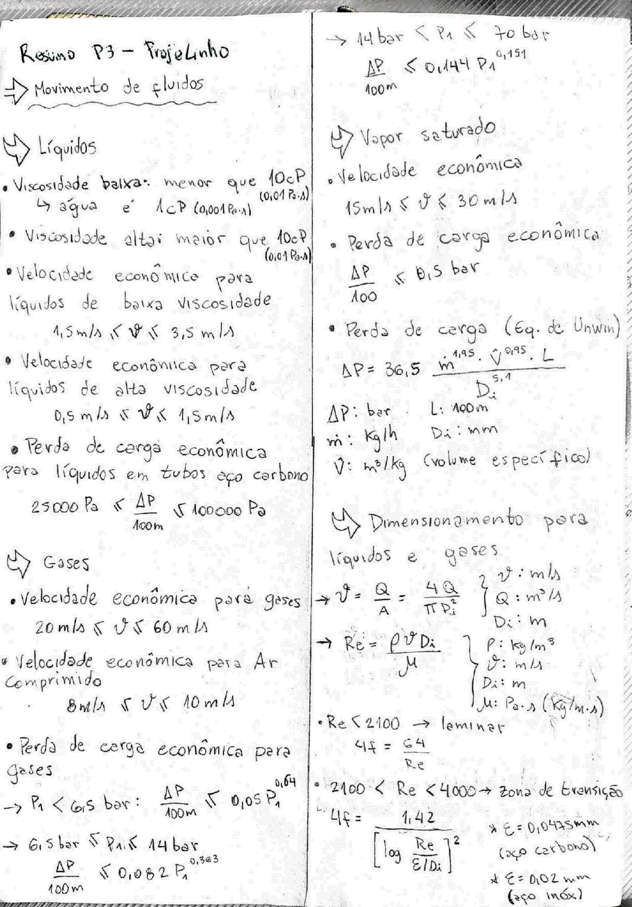 Resumo P3 - Projelinho
⇒ Movimento de fluidos
⇒ Líquidos
• Viscosidade baixa: menor que 10cP
(0,01 Pa.s)
↳ água é 1cP (0,001 Pa.s)
• Viscosidade alta: maior que 10cP
(0,01 Pa.s)
• Velocidade econômica para
líquidos de baixa viscosidade
1,5m/s ≤ v ≤ 3,5 m/s
• Velocidade econômica para
líquidos de alta viscosidade
0,5 m/s ≤ v ≤ 1,5m/s
• Perda de carga econômica
para líquidos em tubos aço carbono
25000 Pa ≤ ΔP/100m ≤ 100000 Pa
⇒ Gases
• Velocidade econômica para gases
20 m/s ≤ v ≤ 60 m/s
• Velocidade econômica para Ar
Comprimido
8m/s ≤ v ≤ 10 m/s
• Perda de carga econômica para
gases
→ P₁ < 6,5 bar: ΔP/100m ≤ 0,05 P₁^0,64
→ 6,5 bar ≤ P₁ ≤ 14 bar
ΔP/100m ≤ 0,082 P₁^0,363
→ 14 bar < P₁ ≤ 70 bar
ΔP/100m ≤ 0,144 P₁^0,151
⇒ Vapor saturado
• Velocidade econômica
15m/s ≤ v ≤ 30 m/s
• Perda de carga econômica
ΔP/100 ≤ 0,5 bar
• Perda de carga (Eq. de Unwin)
ΔP = 36,5 ṁ^1,95 · V̂^0,95 · L / Di^5,1
ΔP: bar L: 100m
ṁ: Kg/h Di: mm
V̂: m³/kg (volume específico)
⇒ Dimensionamento para
líquidos e gases
→ v = Q/A = 4Q/πDi² { v: m/s
Q: m³/s
Di: m
→ Re = ρvDi/μ { ρ: kg/m³
v: m/s
Di: m
μ: Pa.s (Kg/m.s)
• Re < 2100 → laminar
4f = 64/Re
• 2100 < Re < 4000 → Zona de transição
4f = 1,42/[log Re/(ε/Di)]²
* ε = 0,0475mm
(aço carbono)
* ε = 0,02 mm
(aço inóx)